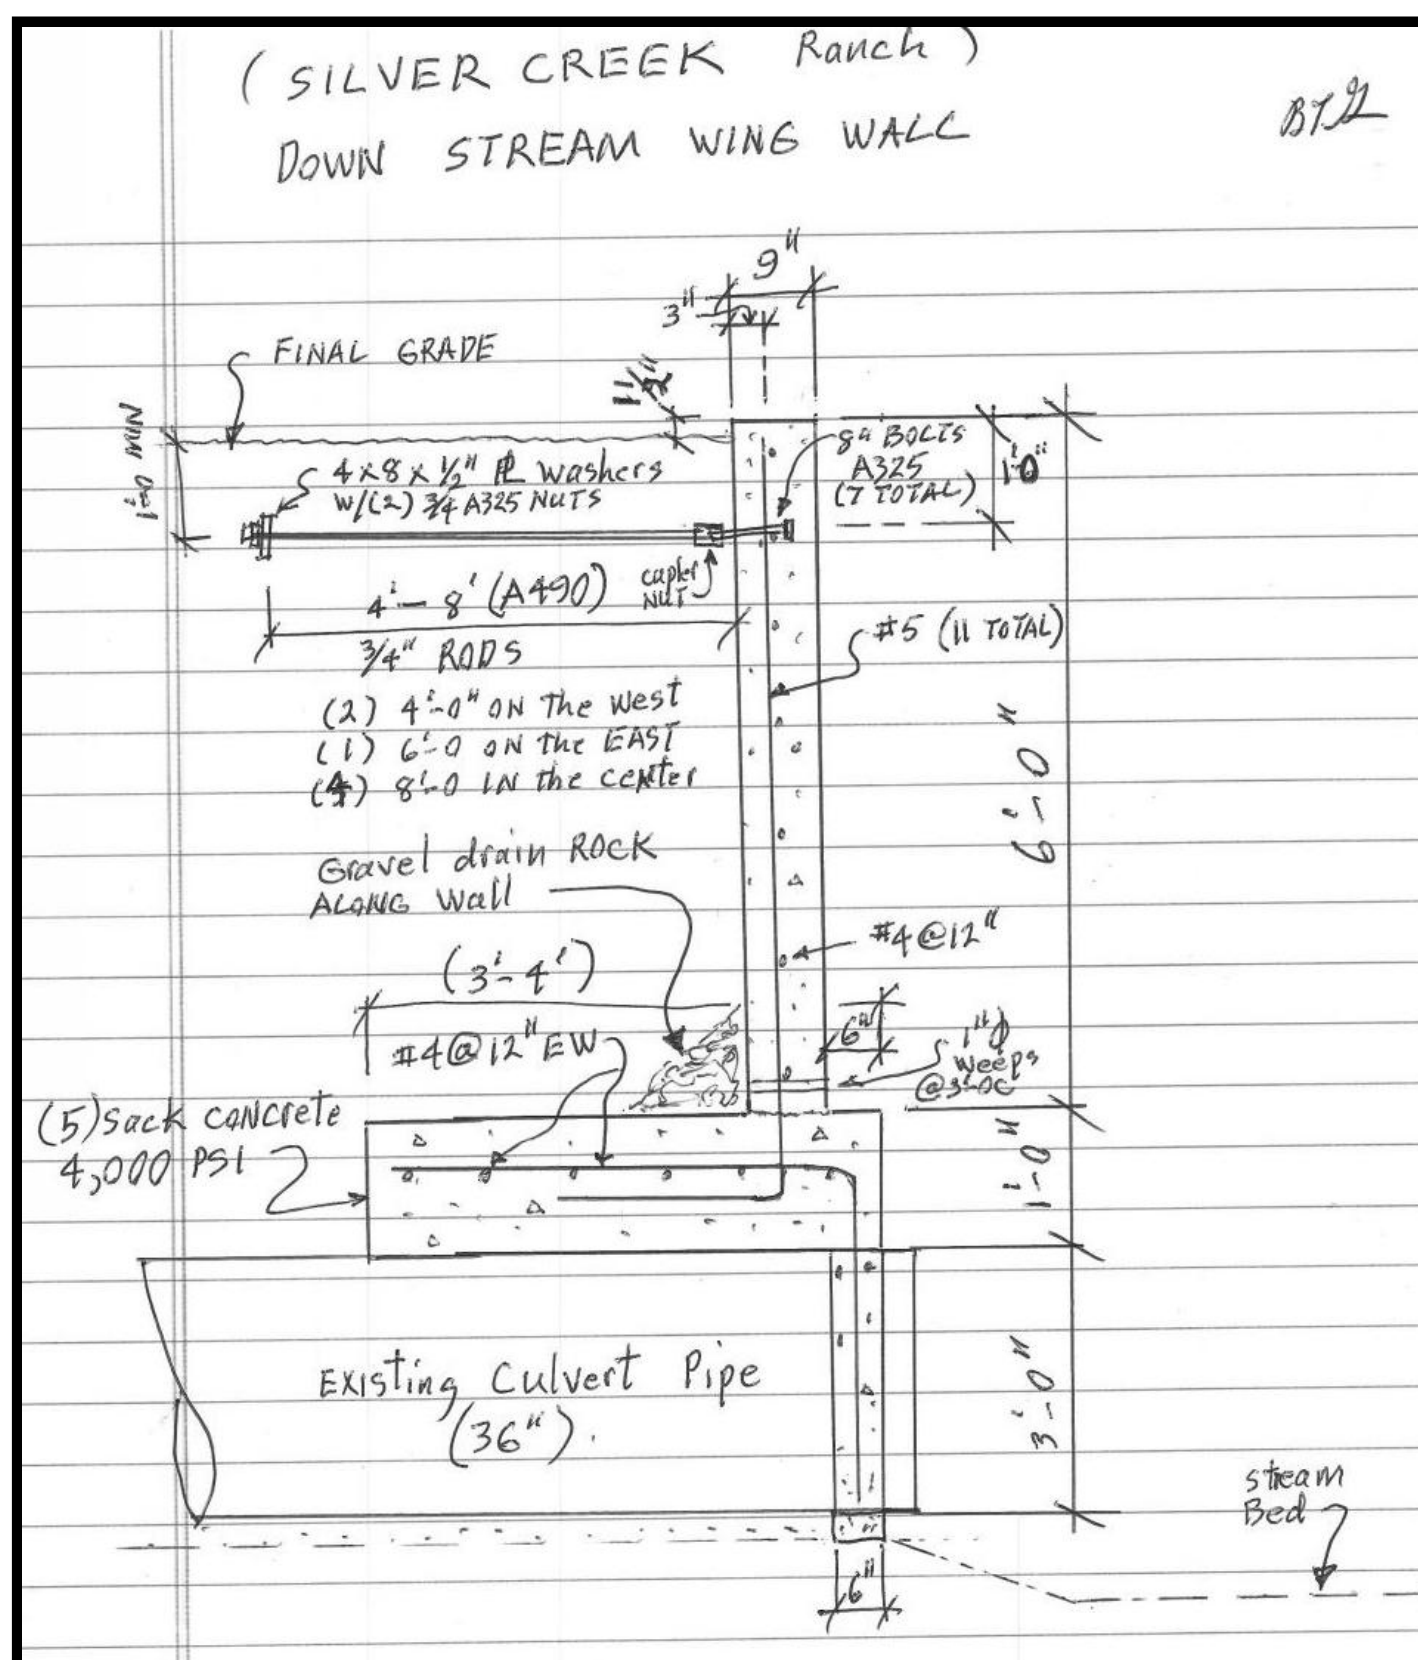 (SILVER CREEK Ranch)
DOWN STREAM WING WALL
9"
3"
FINAL GRADE
1 1/2"
1'-0 MIN
4x8x1/2" PL washers
W/(2) 3/4 A325 NUTS
8" BOLTS
A325
(7 TOTAL)
1'-0"
4'-8' (A490)
capler
NUT
3/4" RODS
#5 (11 TOTAL)
(2) 4'-0" ON The west
(1) 6'-0 ON the EAST
(4) 8'-0 IN the center
6'-0"
Gravel drain ROCK
ALONG Wall
#4@12"
(3'-4')
#4@12" EW
6"
1"φ
weeps
@3'-OC
(5) Sack concrete
4,000 PSI
1'-0"
Existing Culvert Pipe
(36").
3'-0"
stream
Bed
6"